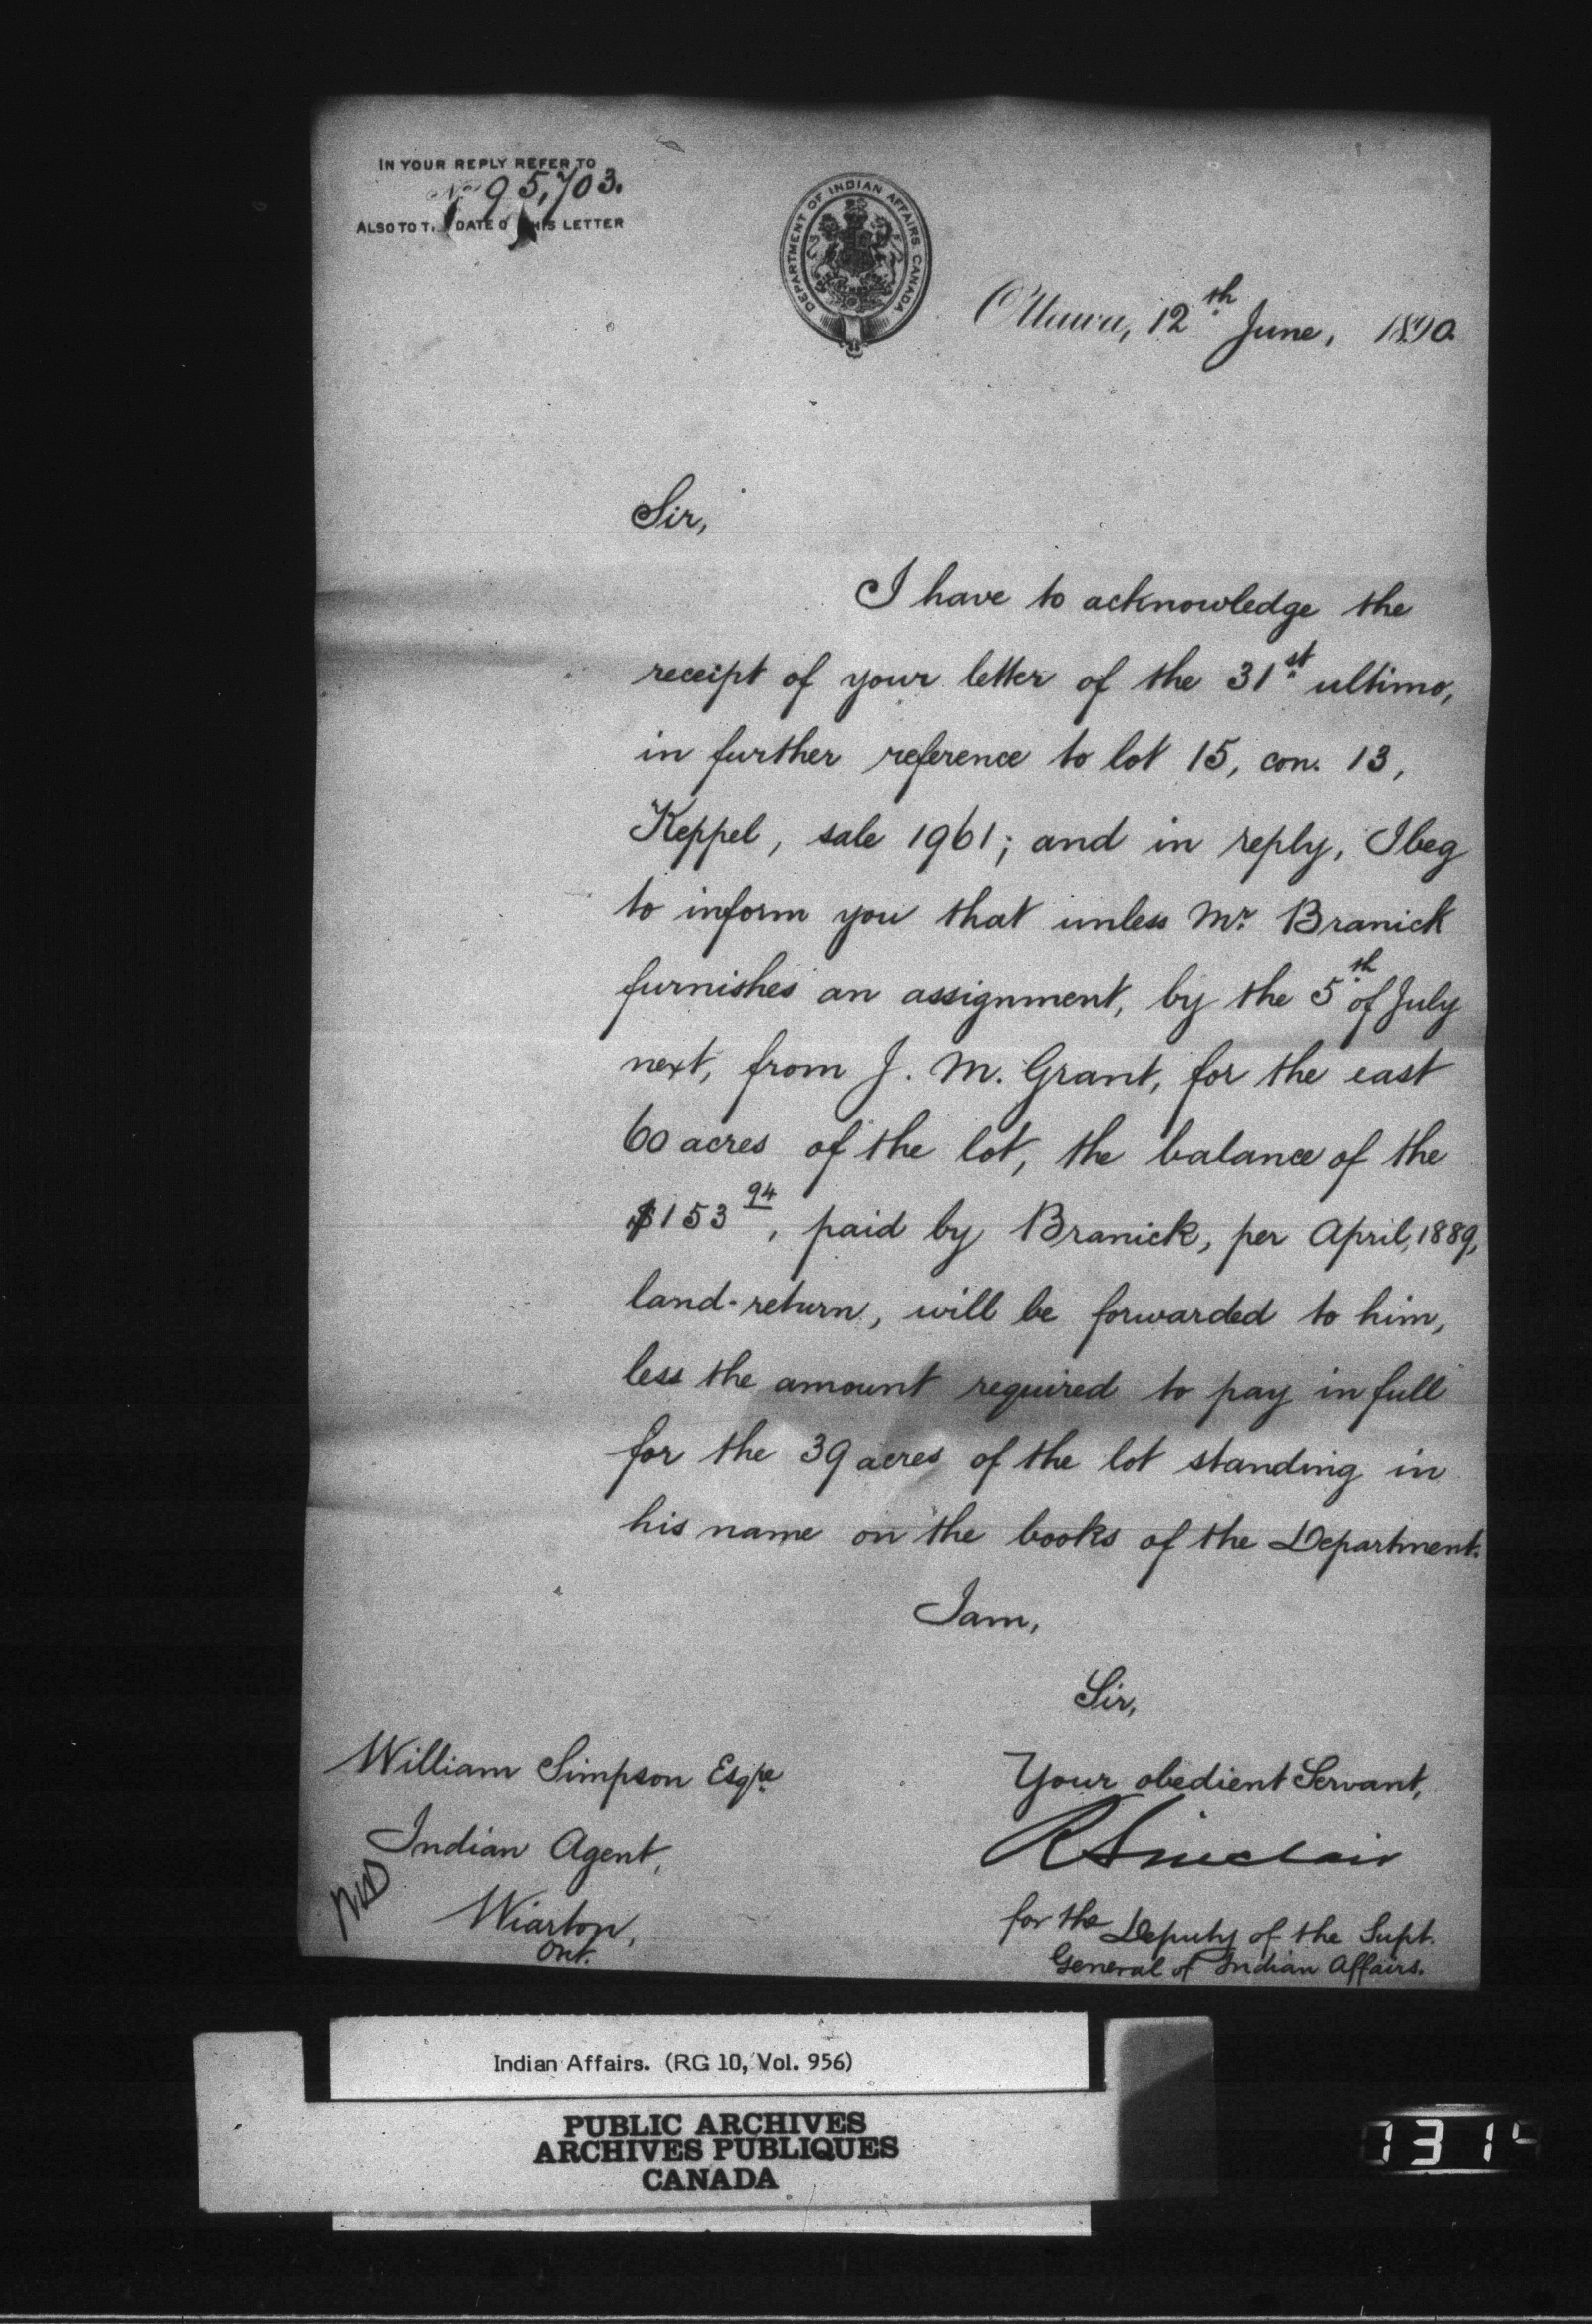 IN YOUR REPLY REFER TO
No 95,703.
ALSO TO T. DATE O HIS LETTER
DEPARTMENT OF INDIAN AFFAIRS CANADA
Ottawa, 12th June, 1890.
Sir,
I have to acknowledge the
receipt of your letter of the 31st ultimo,
in further reference to lot 15, con. 13,
Keppel, sale 1961; and in reply, I beg
to inform you that unless Mr. Branick
furnishes an assignment, by the 5th of July
next, from J. M. Grant, for the east
60 acres of the lot, the balance of the
$153 94, paid by Branick, per April, 1889,
land-return, will be forwarded to him,
less the amount required to pay in full
for the 39 acres of the lot standing in
his name on the books of the Department.
I am,
Sir,
Your obedient Servant,
R Sinclair
for the Deputy of the Supt.
General of Indian Affairs.
William Simpson Esqre
Indian Agent,
Wiarton,
Ont.
Indian Affairs. (RG 10, Vol. 956)
PUBLIC ARCHIVES
ARCHIVES PUBLIQUES
CANADA
1314